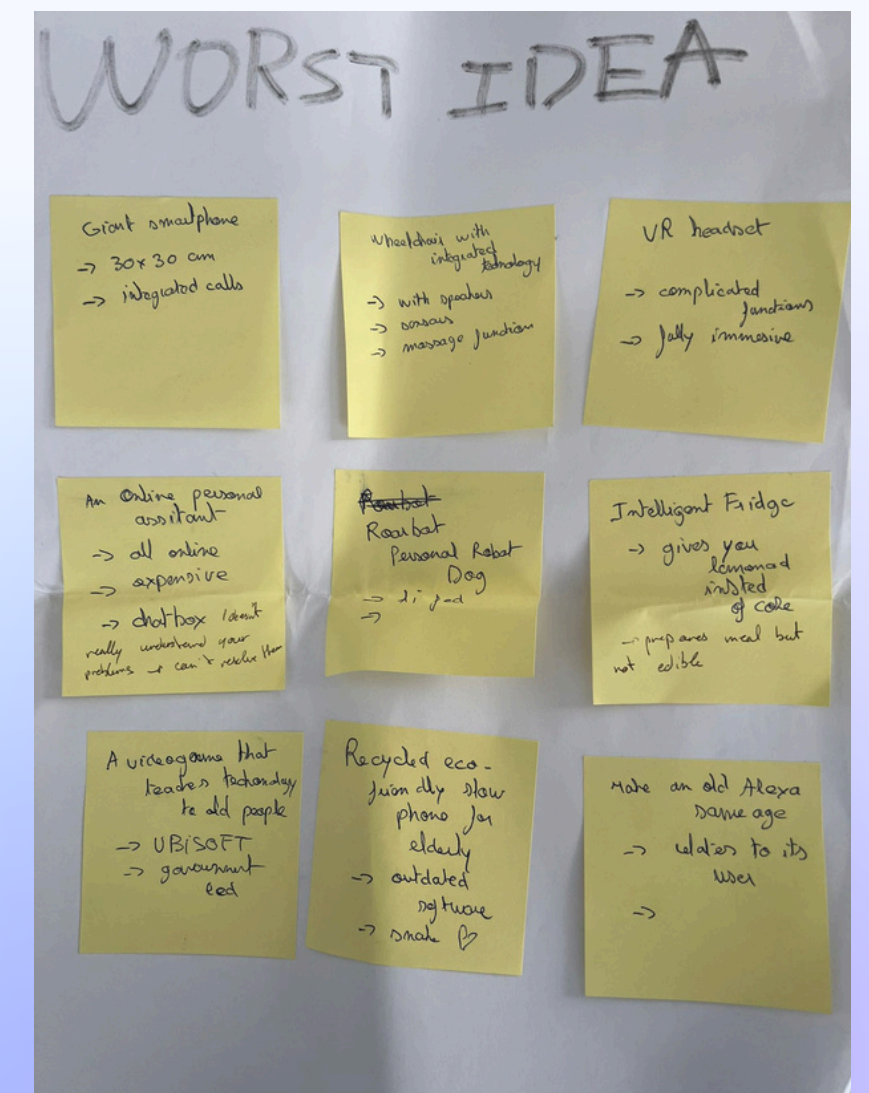 WORST IDEA
Giant smartphone
-> 30x30 cm
-> integrated calls
Wheelchair with
integrated
tehnology
-> with speakers
-> sensors
-> massage function
VR headset
-> complicated
functions
-> fully immesive
An Online personal
assitant
-> all online
-> expensive
-> chatbox doesn't
really understand your
problems -> can't resolve them
Roarbot
Personal Robot
Dog
->
->
Intelligent Fridge
-> gives you
lemonad
insted
of coke
-> prepares meal but
not edible
A videogame that
teaches technology
to old people
-> UBiSOFT
-> government
led
Recycled eco-
friendly slow
phone for
elderly
-> outdated
software
-> snake ♡
Make an old Alexa
same age
-> relates to its
user
->